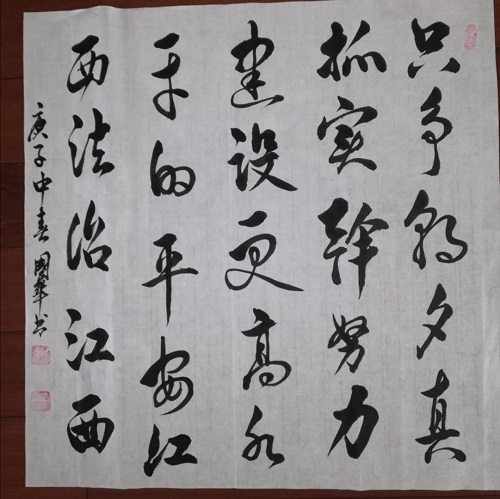 只争朝夕真
抓实幹努力
建设更高水
平的平安江
西法治江西
庚子中春国华书